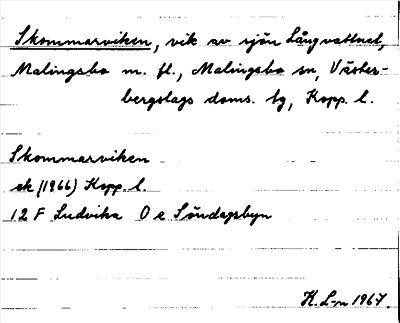 Skommarviken, vik av sjön Långvattnet,
Malingsbo m. fl., Malingsbo sn, Väster-
bergslags doms. tg, Kopp. l.
Skommarviken
ek (1966) Kopp. l.
12 F Ludvika 0 e Söndagsbyn
K. L-n 1967.